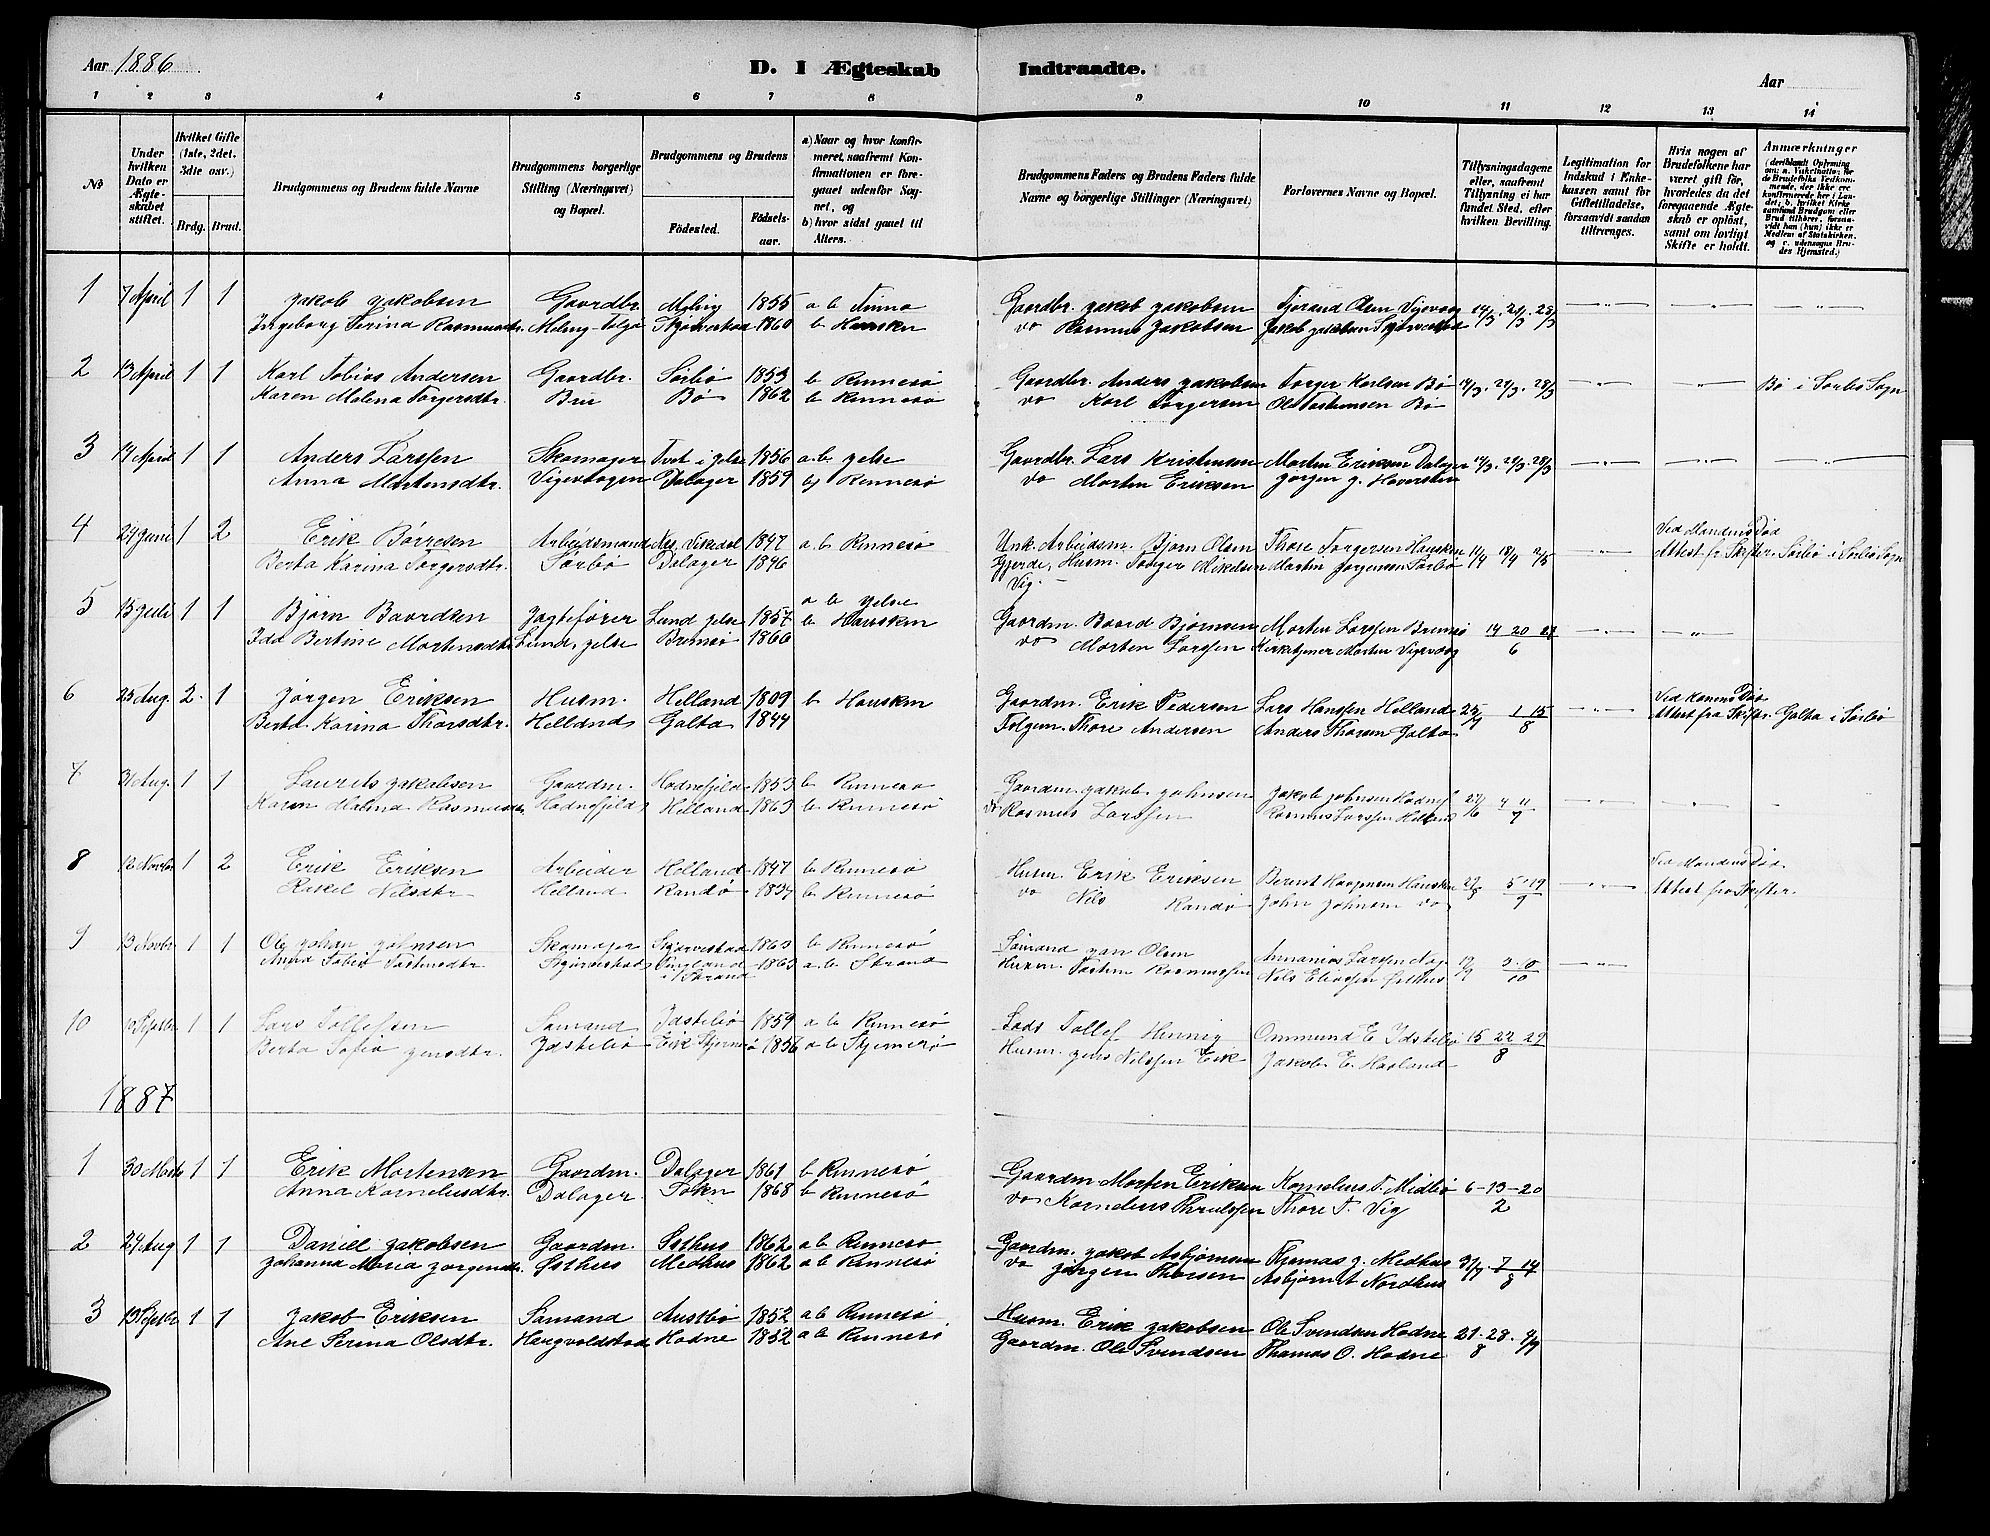 Aar 1886
D. I Ægteskab Indtraadte.
Aar
1 2 3 4 5 6 7 8 9 10 11 12 13 14
No
Under hvilken Dato er Ægteskabet stiftet.
Hvilket Gifte (1ste, 2det. 3die osv.)
Brdg. Brud.
Brudgommens og Brudens fulde Navne
Brudgommens borgerlige Stilling (Næringsvei) og Bopæl.
Brudgommens og Brudens
Födested.
Födselsaar.
a) Naar og hvor konfirmeret, saafremt Konfirmationen er foregaaet udenfor Sognet, og
b) hvor sidst gaaet til Alters.
Brudgommens Faders og Brudens Faders fulde Navne og borgerlige Stillinger (Næringsvei)
Forlovernes Navne og Bopæl.
Tillysningsdagene eller, saafremt Tillysning ei har fundet Sted, efter hvilken Bevilling.
Legitimation for Indskud i Enkekassen samt for Giftetilladelse, forsaavidt saadan tiltrænges.
Hvis nogen af Brudefolkene har været gift för, hvorledes da det foregaaende Ægteskab er oplöst, samt om lovligt Skifte er holdt.
Anmærkninger
1 7 April 1 1 Jakob Jakobsen Gaardbr. Meling 1855 a b Finnø Gaardbr. Jakob Jakobsen Tjerand Olsen Vigevaag 14/3. 21/3. 28/3
Ingeborg Serina Rasmusdtr. Meling Talgø Skjørvestad 1860 b Hausken do Rasmus Jakobsen Jakob Jakobsen Skjørvestad
2 13 April 1 1 Karl Tobias Andersen Gaardbr. Sørbø 1853 b Rennesø Gaardbr. Anders Jakobsen Torger Karlsen Bø 14/3. 21/3. 28/3 Bø i Sørbø Sogn
Karen Malena Torgersdtr. Bru Bø 1862 b Rennesø do Karl Torgersen Ole Bø
3 14 April 1 1 Anders Larssen Skomager Tvet i Jelse 1856 a.b Jelse Gaardbr. Lars Kristensen Morten Eriksen Dalager 14/3. 21/3. 28/3
Anna Mortensdtr. Vigevaagen Dalager 1859 b Rennesø do Morten Eriksen Jørgen J. Haverstein
4 24 Juni 1 2 Erik Børresen Arbeidsmand Næs, Vikedal 1847 a. b Rennesø Unk. Arbeidsm. Bjørn Olsen Thore Torgersen Hausken 11/4 18/4 2/5 Ved Mandens Død
Berta Karina Torgersdtr. Sørbø Dalager 1846 Gjerde, Husm. Torger Mikelsen Martin Jørgensen Sørbø Attest fr Skifter. Sørbø i Sørbø Sogn
Vig.
5 15 Juli 1 1 Bjørn Baardsen Jagtefører Lund Jelse 1857 a b Jelse Gaardm. Baard Bjørnsen Morten Larssen Bremsø 14 20 27
Ida Bertine Mortensdtr. Lund, Jelse Bremsø 1860 b Hausken do Morten Larssen Kirketjener Morten Vigevaag 6
6 25 Aug. 2. 1 Jørgen Eriksen Husm. Helland 1809 b Hausken Gaardm. Erik Pedersen Lars Hanssen Helland 25/7 1 15 Ved Konens Død
Berta Karina Thorsdtr. Helland Galta 1844 Folgem. Thore Andersen Anders Thorsen Galta 8 Attest fra Skifter. Galta i Sørbø
7 31 Aug. 1 1 Laurits Jakobsen Gaardm. Hodnefjeld 1853 b Rennesø Gaardm. Jakob Johnsen Jakob Johnsen Hodnef 27/6 4 11
Karen Malena Rasmusdtr. Hodnefjeld Helland 1863 b. Rennesø do Rasmus Larssen Rasmus Larssen Helland 7
8 12 Novbr 1 2 Erik Eriksen Arbeider Helland 1847 b Rennesø Husm. Erik Eriksen Berent Koopman Hausken 29/8 5 19 Ved Mandens Død.
Rakel Nilsdtr Helland Randø 1834 b Rennesø do Nils Randø John Johnsen do 9 Attest fra Skifter.
9 13 Novbr 1 1 Ole Johan Johnsen Skomager Skjørvestad 1863 b Rennesø Sømand Olsen Annanias Larssen
Anna Sofie Skjørvestad 1863 a.b Strand Husm. Rasmussen Nils Eliassen 10
i Strand
10 Septbr 1 1 Lars Tollefsen Sømand Idstebø 1859 a b Rennesø Lods Tollef Henrig Ommund E Idstebø 15 22 29
Berta Sofie Jensdtr. Idstebø Eik Skjernerø 1856 a b Skjernerø Husm. Jens Nilssen Eik Jakob E. Hasland 8
1887
1 30 Marts 1 1 Erik Mortensen Gaardm. Dalager 1861 b Rennesø Gaardm Morten Eriksen Kornelius T. Midbø 6-13-20
Anna Korneliusdtr. Dalager Førn 1868 b Rennesø do Kornelius Thore T. Vig 2
2 24 Aug 1 1 Daniel Jakobsen Gaardm. Østhus 1862 a b Rennesø Gaardm. Jakob Asbjørnsen Thomas J. Medhus 31/7 7 14
Johanna Maria Jørgensdtr. Østhus Medhus 1862 a b Rennesø do Jørgen Thorsen Asbjørn Nordhus 8
3 19 Septbr 1 1 Jakob Eriksen Sømand Austbø 1852 a b Rennesø Husm. Erik Jakobsen Ole Svendsen Hodne 21. 28. 4/9
Ane Serina Olsdtr. Hegvoldstad Hodne 1852 a b Rennesø Gaardm. Ole Svendsen Thomas O. Hodne 8